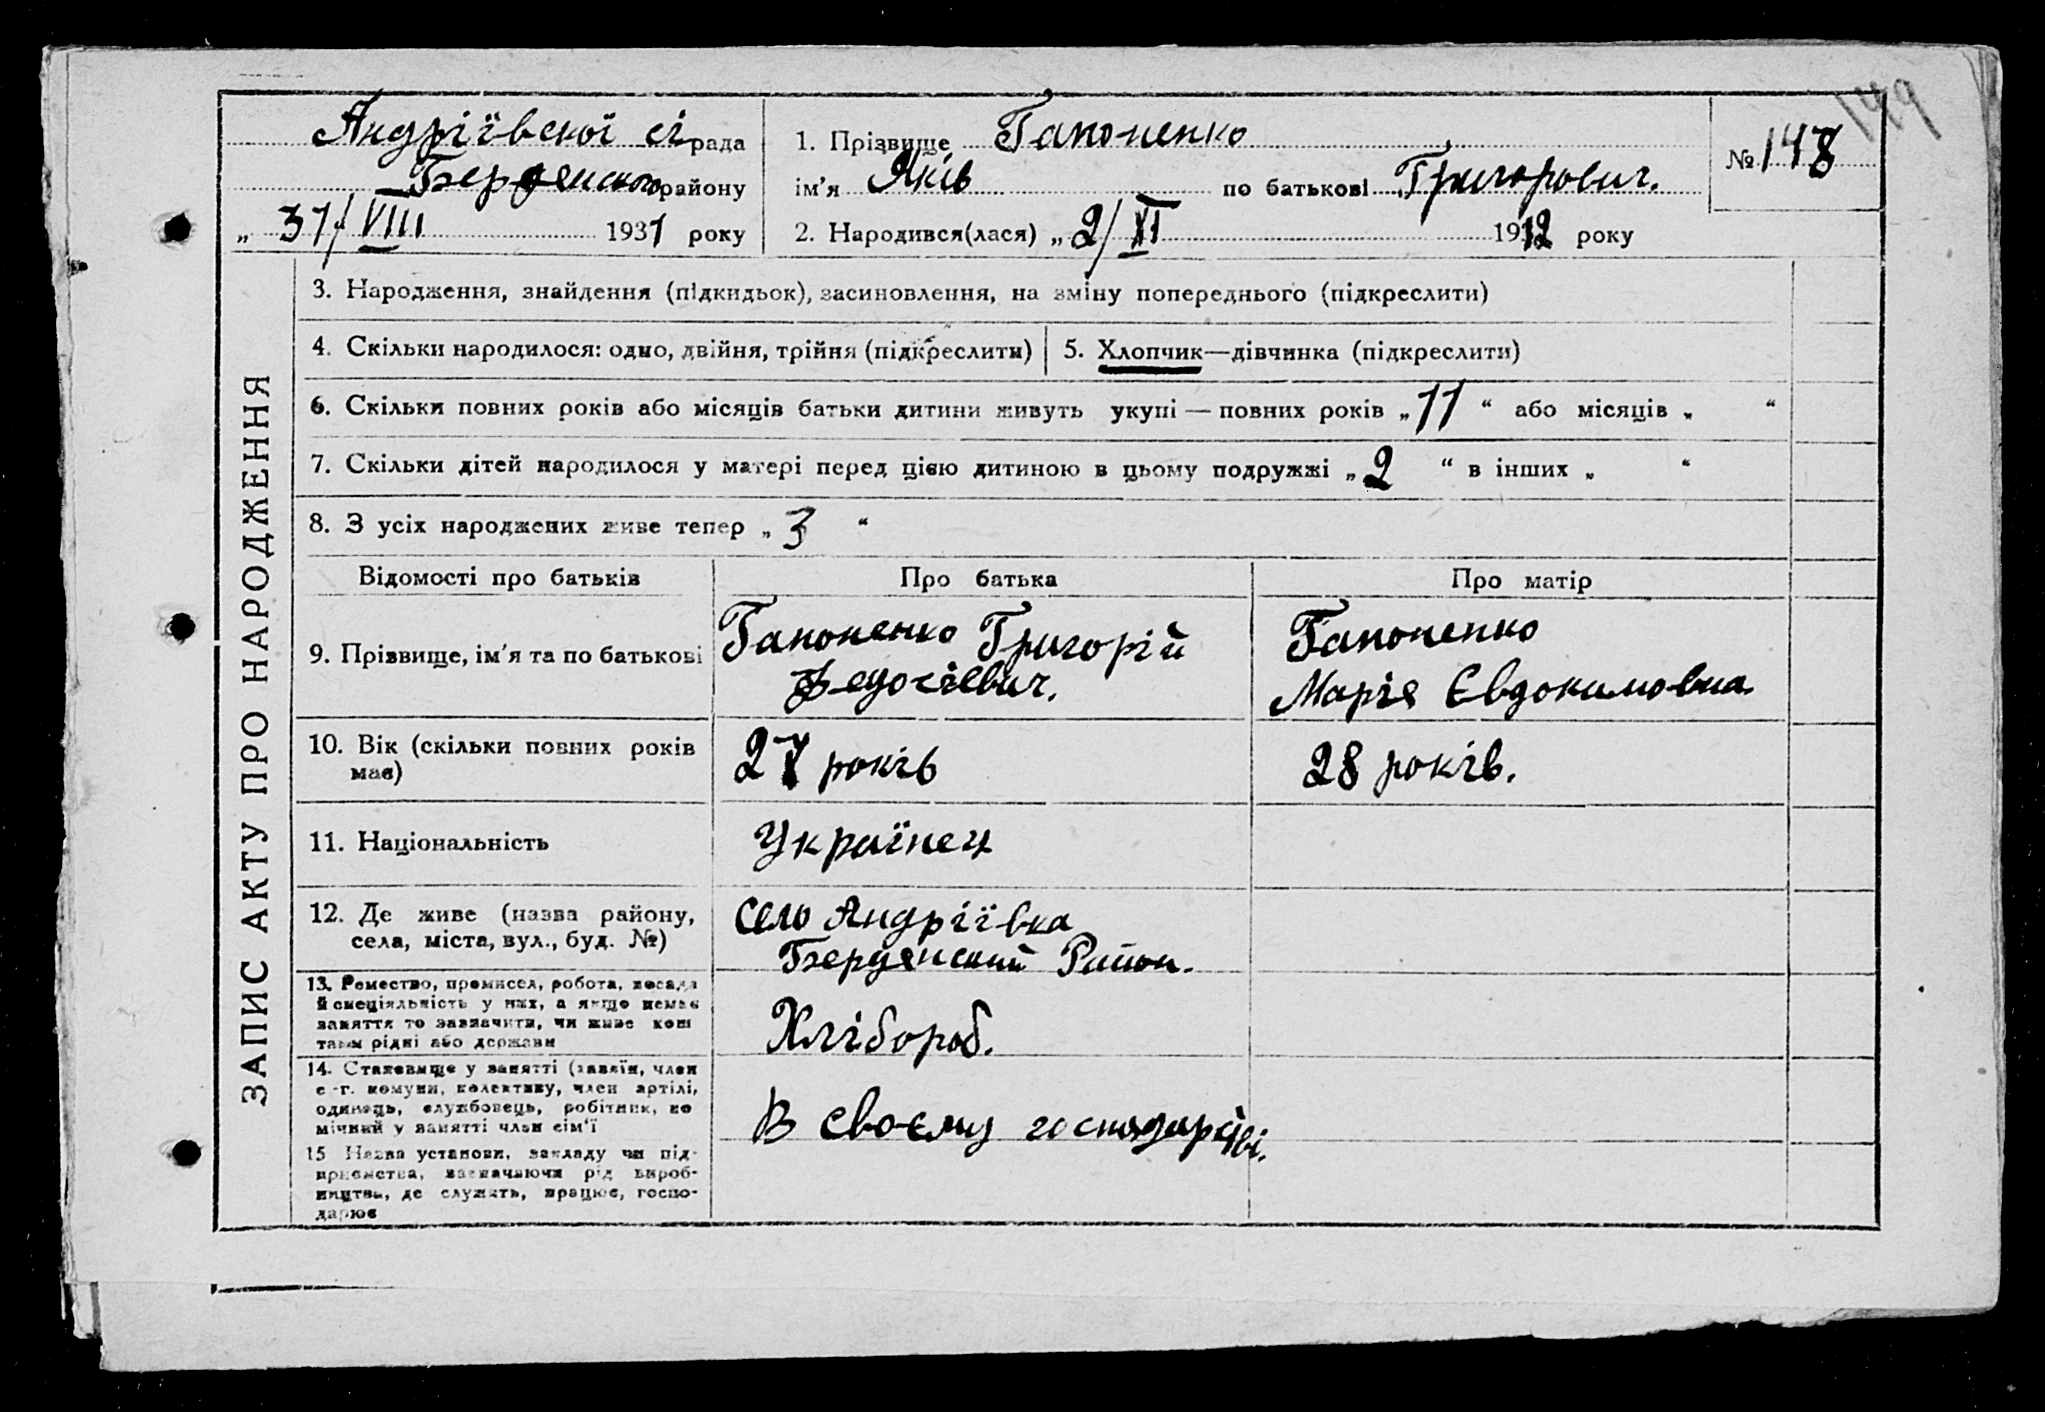 149
Андріївскої сі рада
Бердянского району
„ 31/VIII 1931 року
1. Прізвище Гапоненко
ім'я Яків по батькові Григорович.
2. Народився(лася) „ 2/XI 1912 року
№ 148
ЗАПИС АКТУ ПРО НАРОДЖЕННЯ
3. Народження, знайдення (підкидьок), засиновлення, на зміну попереднього (підкреслити)
4. Скільки народилося: одно, двійня, трійня (підкреслити)
5. Хлопчик—дівчинка (підкреслити)
6. Скільки повних років або місяців батьки дитини живуть укупі — повних років „ 11 “ або місяців „ “
7. Скільки дітей народилося у матері перед цією дитиною в цьому подружжі „ 2 “ в інших „ “
8. З усіх народжених живе тепер „ 3 “
Відомості про батьків Про батька Про матір
9. Прізвище, ім'я та по батькові
Гапоненко Григорій
Федосієвич.
Гапоненко
Марія Євдокимовна
10. Вік (скільки повних років
має)
27 років
28 років.
11. Національність
Українец
12. Де живе (назва району,
села, міста, вул., буд. №)
село Андріївка
Бердянский Район.
13. Ремество, промисел, робота, посада
й спеціяльність у них, а якщо немає
заняття то зазначити, чи живе кош
тами рідні або держави
Хлібороб.
14. Становище у занятті (хазяїн, член
с.-г. комуни, колективу, член артілі,
одинець, службовець, робітник, по
мічний у занятті член сім'ї
В своєму господарстві.
15 Назва установи, закладу чи під-
приємства, зазначаючи рід вироб-
ництва, де служить, працює, госпо-
дарює